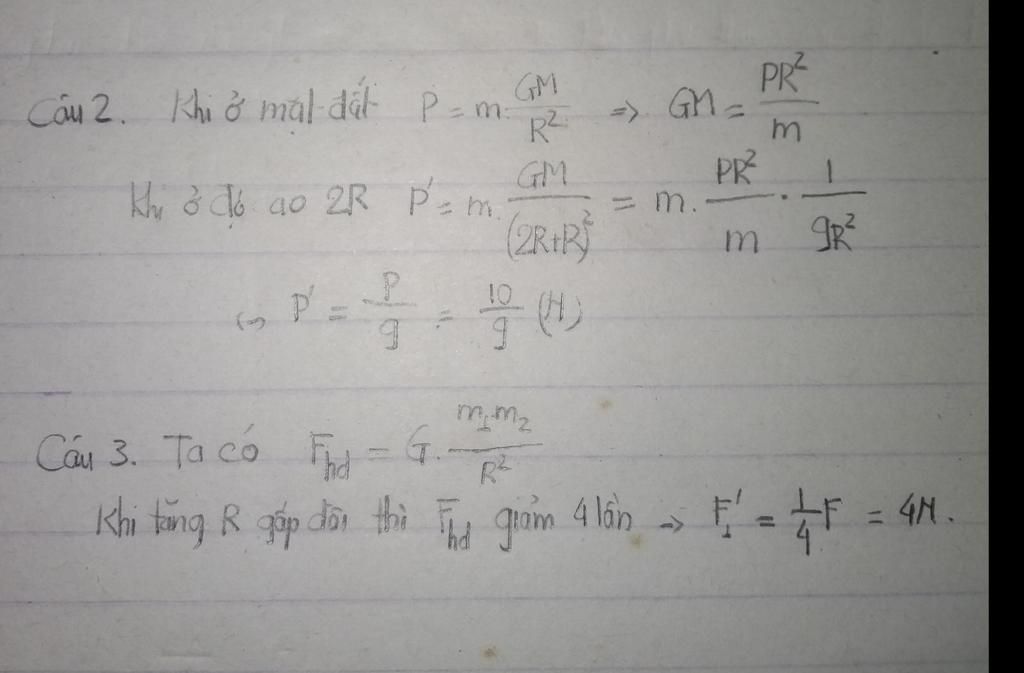 Câu 2. Khi ở mặt đất P = m. GM/R² => GM = PR²/m
Khi ở độ cao 2R P' = m. GM/(2R+R)² = m. PR²/m · 1/9R²
<=> P' = P/9 = 10/9 (N)
Câu 3. Ta có F_hd = G. m₁m₂/R²
Khi tăng R gấp đôi thì F_hd giảm 4 lần → F₁' = 1/4 F = 4N.